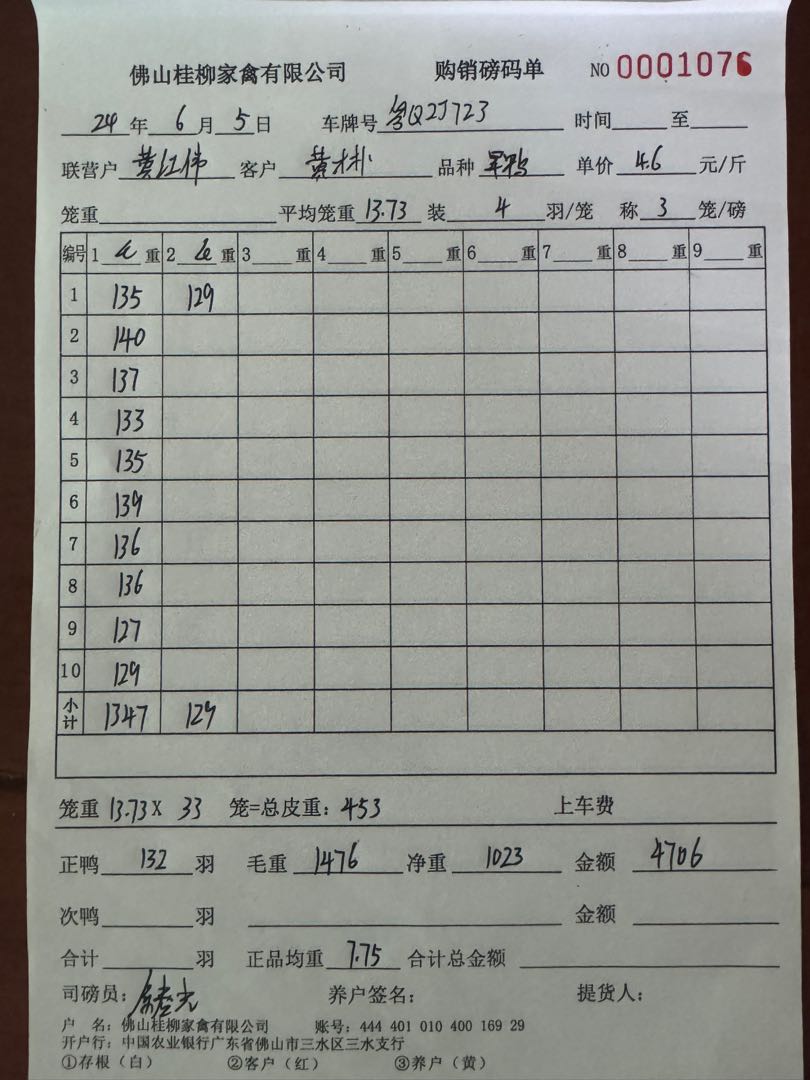 佛山桂柳家禽有限公司 购销磅码单 NO 0001076
24年6月5日 车牌号 粤Q2J723 时间 至
联营户 黄江伟 客户 黄木朴 品种 单价 4.6 元/斤
笼重 平均笼重 13.73 装 4 羽/笼 称 3 笼/磅
编号 1 重 2 重 3 重 4 重 5 重 6 重 7 重 8 重 9 重
1 135 129
2 140
3 137
4 133
5 135
6 139
7 136
8 136
9 127
10 129
小计 1347 129
笼重 13.73 X 33 笼=总皮重: 453 上车费
正鸭 132 羽 毛重 1476 净重 1023 金额 4706
次鸭 羽 金额
合计 羽 正品均重 7.75 合计总金额
司磅员: 养户签名: 提货人:
户 名: 佛山桂柳家禽有限公司 账号: 444 401 010 400 169 29
开户行: 中国农业银行广东省佛山市三水区三水支行
①存根(白) ②客户(红) ③养户(黄)